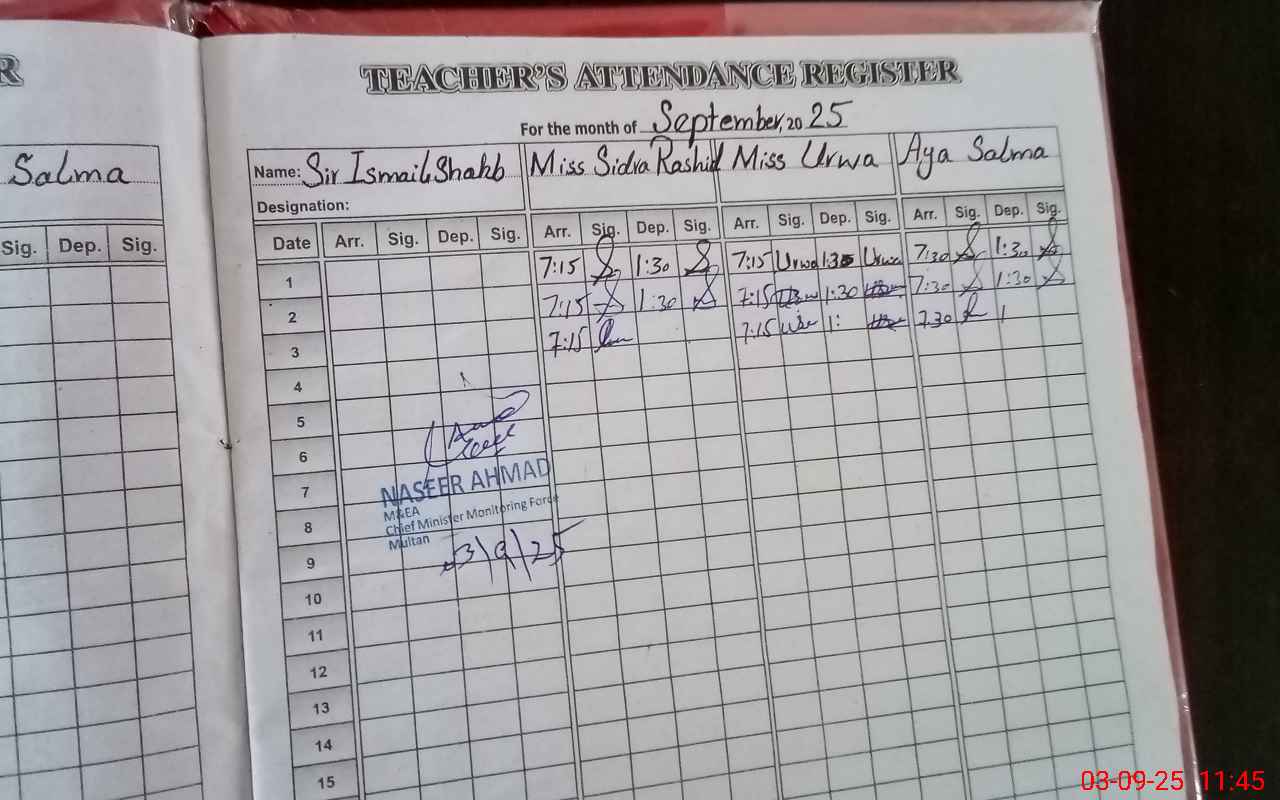 R
Salma
Sig. Dep. Sig.
TEACHER'S ATTENDANCE REGISTER
For the month of September, 20 25
Name: Sir Ismail Shahb Miss Sidra Rashid Miss Urwa Aya Salma
Designation:
Date Arr. Sig. Dep. Sig. Arr. Sig. Dep. Sig. Arr. Sig. Dep. Sig. Arr. Sig. Dep. Sig.
1 7:15 1:30 7:15 Urwa 1:30 Urwa 7:30 1:30
2 7:15 1:30 7:15 1:30 7:30 1:30
3 7:15 7:15 1: 7:30 1
4
5
6
7
8
9
10
11
12
13
14
15
NASEER AHMAD
M&EA
Chief Minister Monitoring Force
Multan
3\9\25
03-09-25 11:45